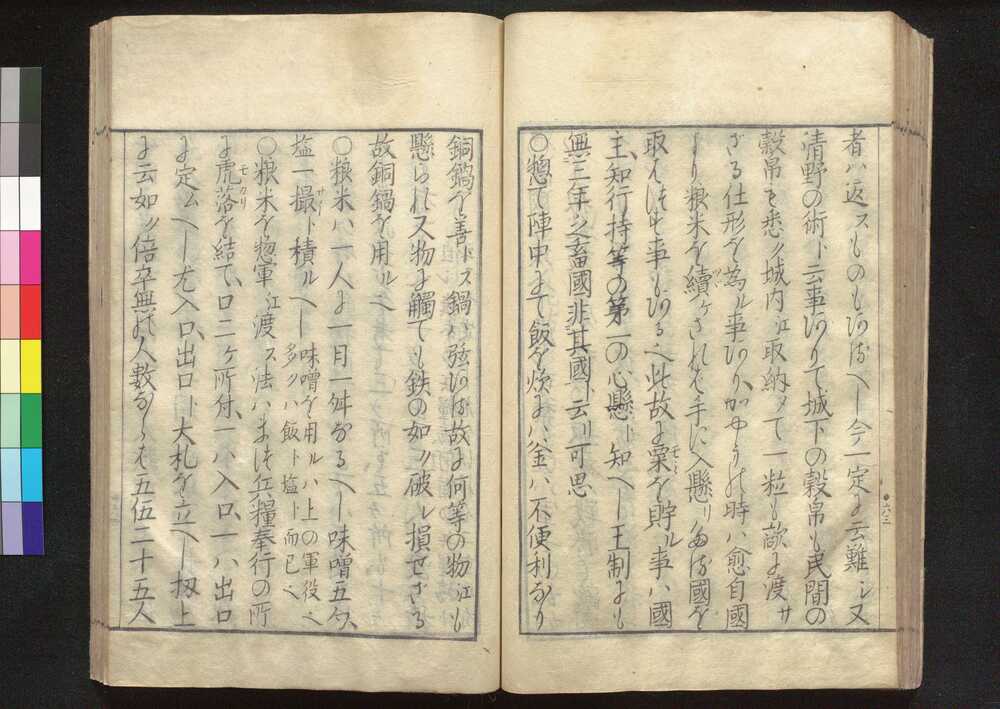 者ハ返スものも有べし今一定に云難シ又
清野の術ト云事有りて城下の穀帛も民間の
穀帛をも悉ク城内江取納メて一粒も敵に渡サ
ざる仕形を為ル事有りかやうの時ハ愈自國
より粮米を續ケされバ手に入懸りたる國を
取はづす事もあるへし此故に粟を貯ル事ハ國
主知行持等の第一の心懸ト知べし王制にも
無三年之畜國非其國ト云リ可思
〇惣て陣中にて飯を炊にハ釜ハ不便利なり
六三
銅鍋を善トス鍋ハ弦有ル故に何等の物江も
懸られス物に觸ても鉄の如ク破レ損せざる
故銅鍋を用ルなり
〇粮米ハ一人に一日一舛なるべし味噌五勺
塩一撮ト積ルべし
味噌を用ルハ上の軍役也
多クハ飯ト塩ト而已也
〇粮米を惣軍江渡ス法ハまづ兵糧奉行の所
に虎落を結て口二ケ所付一ハ入口一ハ出口
に定ムべし尤入口出口ト大札を立べし扨上
に云如ク倍卒無の人数ならば五伍二十五人